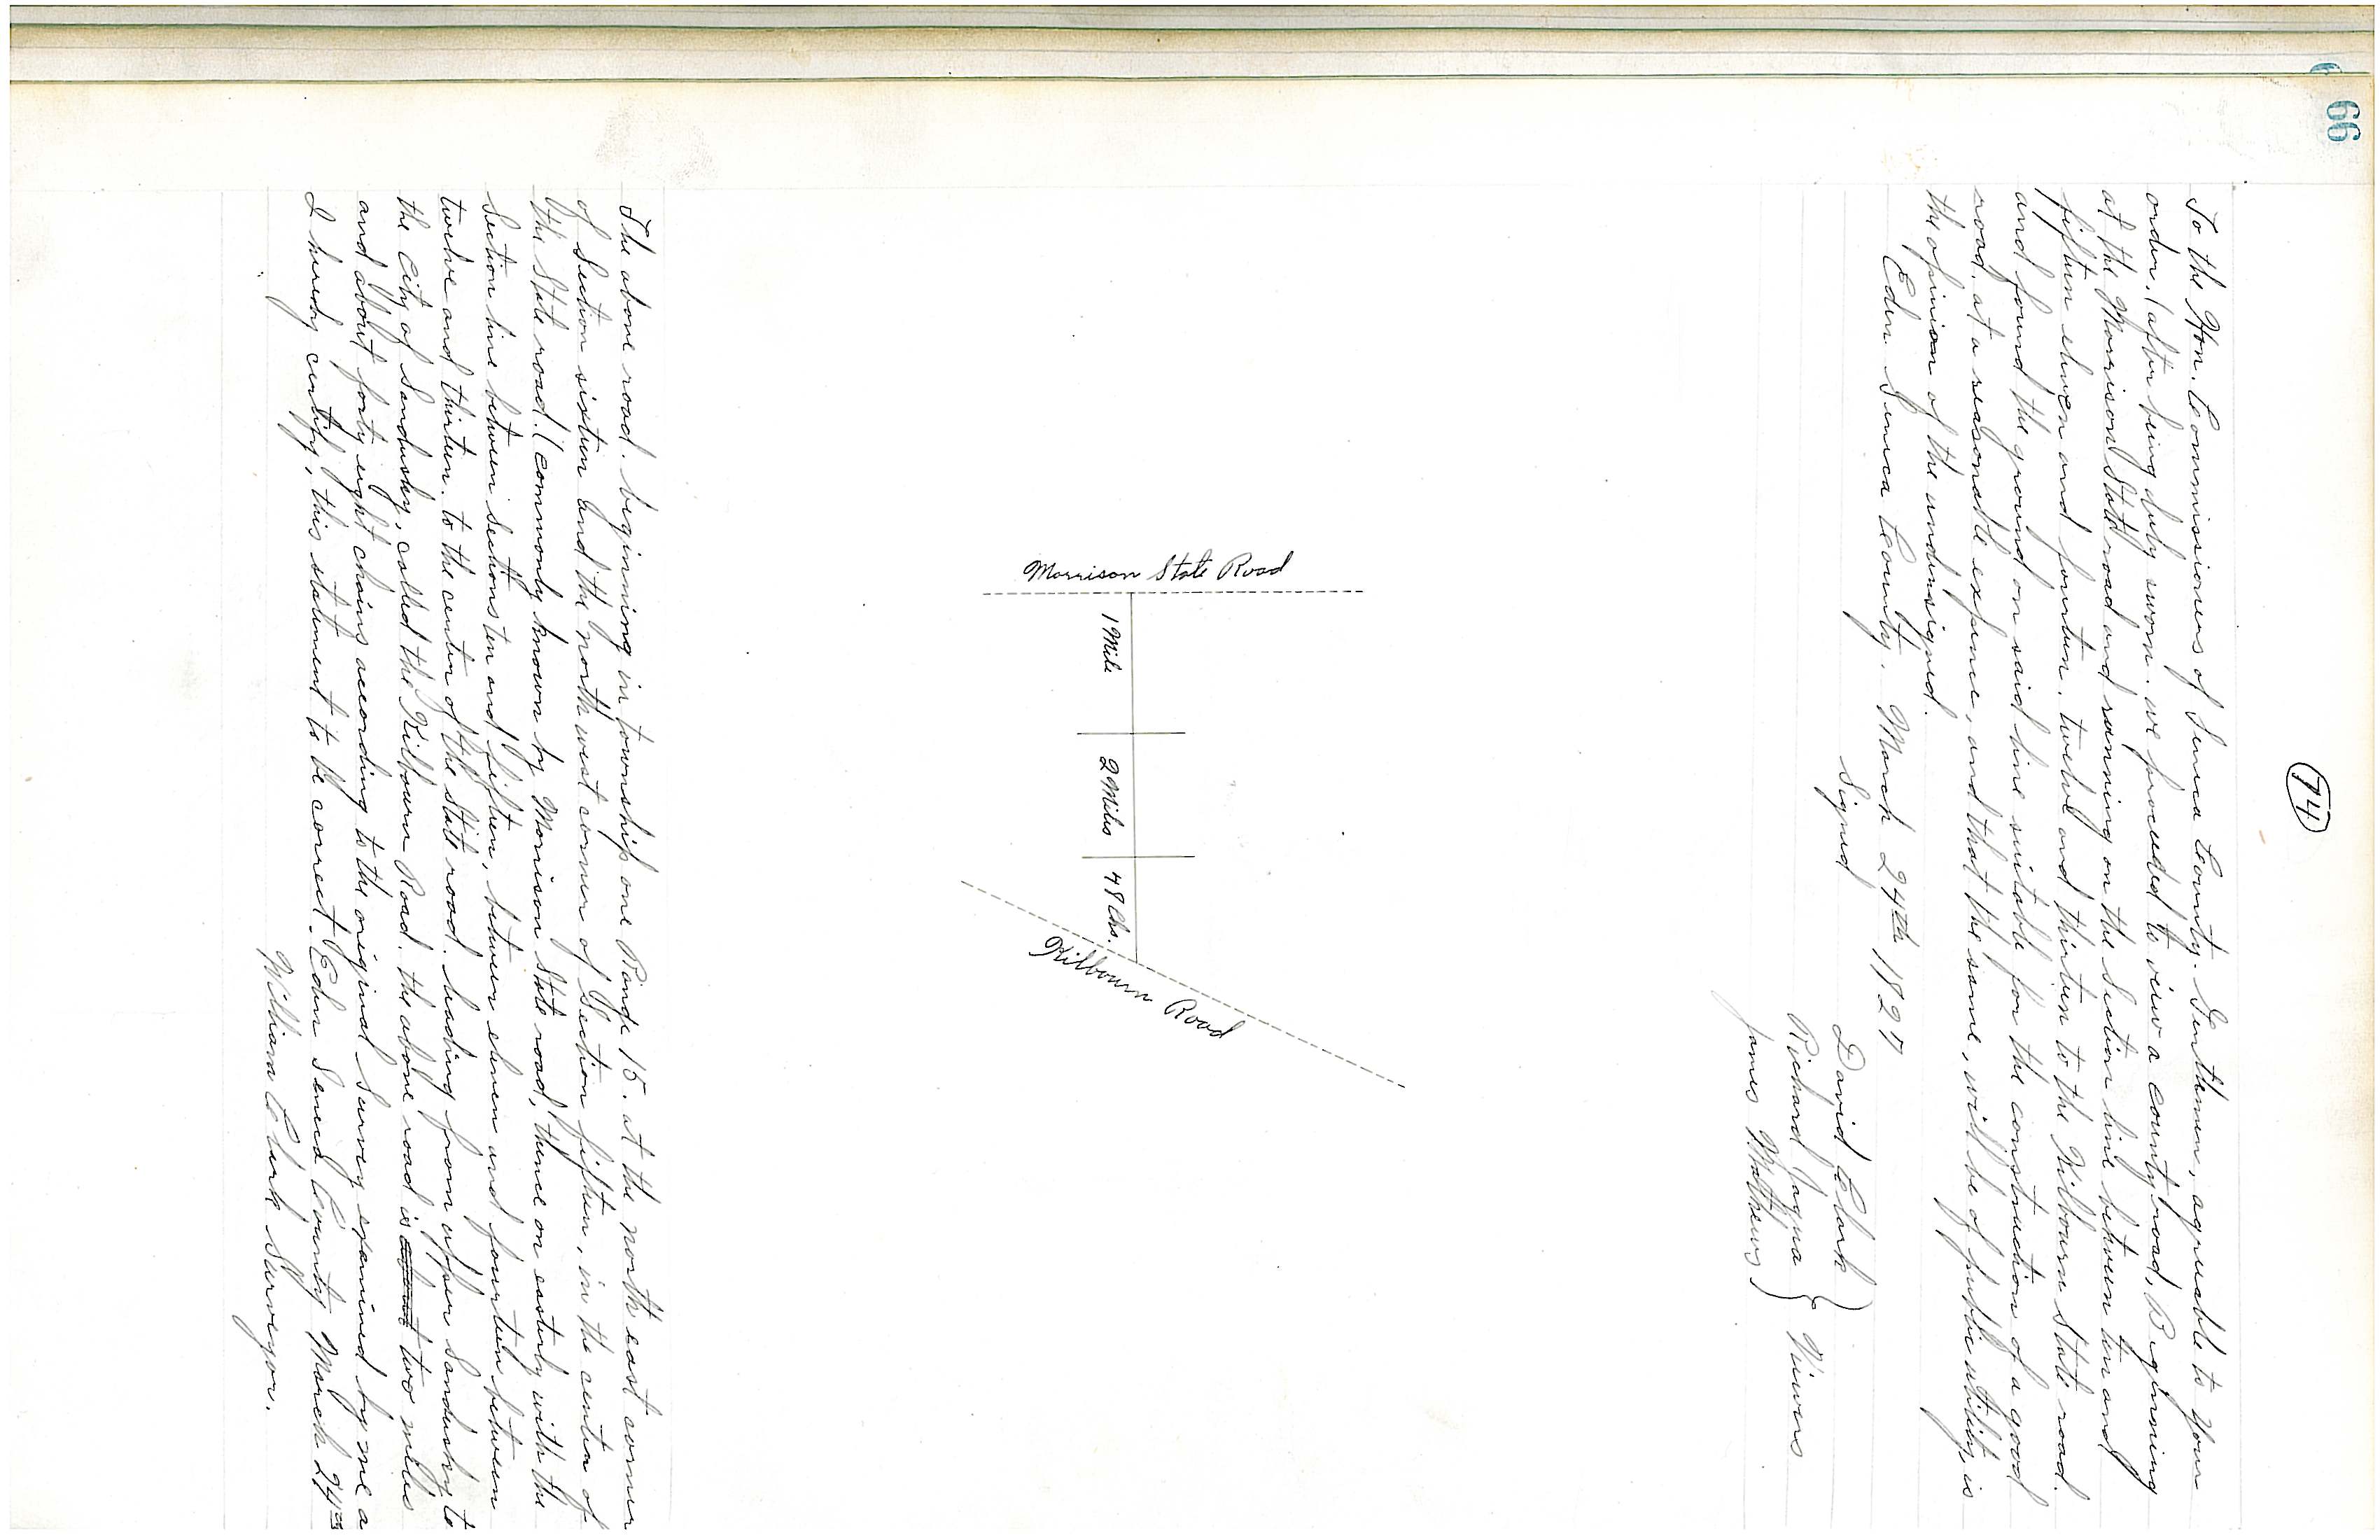 66
74
To the Hon. Commissioners of Seneca County. Gentlemen, agreeable to your
order, (after being duly sworn. we proceeded to view a county road, Beginning
at the Morrison State road and running on the Section line between ten and
fifteen eleven and fourteen. twelve and thirteen to the Kilbourn State road.
and found the ground on said line suitable for the construction of a good
road. at a reasonable expense, and that the same, will be of public utility, is
the opinion of the undersigned.
Eden Seneca County. March 24th 1827
Signed
David Clark
Richard Jaqua } Viewers
James Mathews
Morrison State Road
1 Mile
2 Miles
48 Chs.
Kilbourn Road
The above road. beginning in township one Range 15. at the north east corner
of Section sixteen and the north west corner of Section fifteen, in the center of
the State road. (commonly known by Morrison State road, thence on easterly with the
Section line between Sections ten and fifteen, between eleven and fourteen between
twelve and thirteen. to the center of the State road. leading from upper Sandusky to
the City of Sandusky, called the Kilbourn Road. the above road is two miles
and about forty eight chains according to the original Survey examined by me a
I hereby certify, this statement to be correct. Eden Seneca County March 24th
William Clark Surveyor.